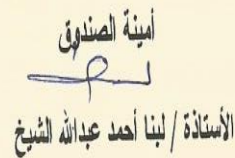 أمينة الصندوق
الأستاذة / لبنا أحمد عبدالله الشيخ